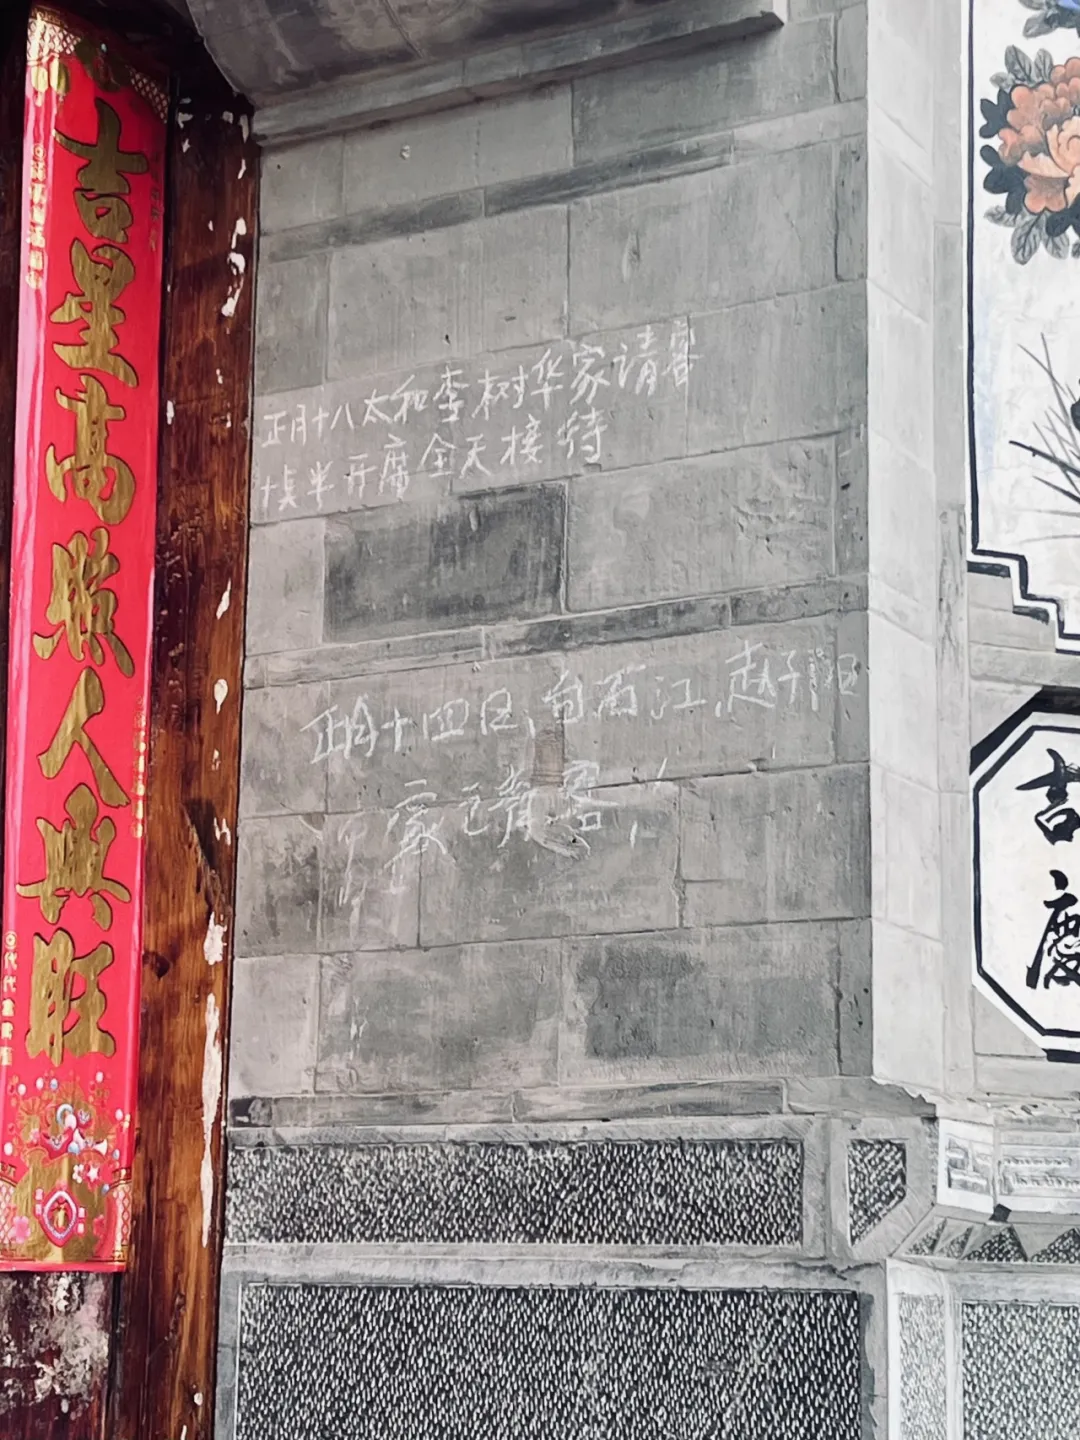 吉星高照人興旺
正月十八太和李树华家请客
十点半开席全天接待
正月十四日,白石江,赵子
家请客
吉慶